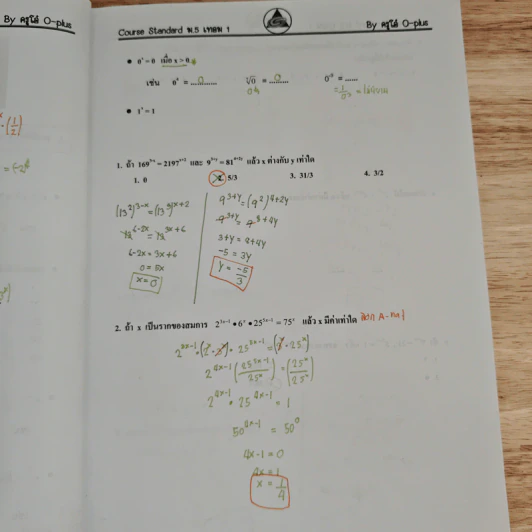 By ครูโต๋ O-plus
Course Standard ม.5 เทอม 1
By ครูโต๋ O-plus
• 0ˣ = 0 เมื่อ x > 0
เช่น 0⁴ = ...0... ∜0 = ...0... 0⁻³ = ......
0^¼ = 1/0³ = ไม่นิยาม
• 1ˣ = 1
1. ถ้า 169³⁻ˣ = 2197ˣ⁺² และ 9³⁺ʸ = 81⁴⁺²ʸ แล้ว x ต่างกับ y เท่าใด
1. 0 2. 5/3 3. 31/3 4. 3/2
(13²)³⁻ˣ = (13³)ˣ⁺²
13⁶⁻²ˣ = 13³ˣ⁺⁶
6-2x = 3x+6
0 = 5x
x = 0
9³⁺ʸ = (9²)⁴⁺²ʸ
9³⁺ʸ = 9⁸⁺⁴ʸ
3+y = 8+4y
-5 = 3y
y = -5/3
2. ถ้า x เป็นรากของสมการ 2³ˣ⁻¹ • 6ˣ • 25⁵ˣ⁻¹ = 75ˣ แล้ว x มีค่าเท่าใด
2³ˣ⁻¹ • (2ˣ • 3ˣ) • 25⁵ˣ⁻¹ = (3ˣ • 25ˣ)
2⁴ˣ⁻¹ (25⁵ˣ⁻¹/25ˣ) = (25ˣ/25ˣ)
2⁴ˣ⁻¹ • 25⁴ˣ⁻¹ = 1
50⁴ˣ⁻¹ = 50⁰
4x-1 = 0
4x = 1
x = 1/4